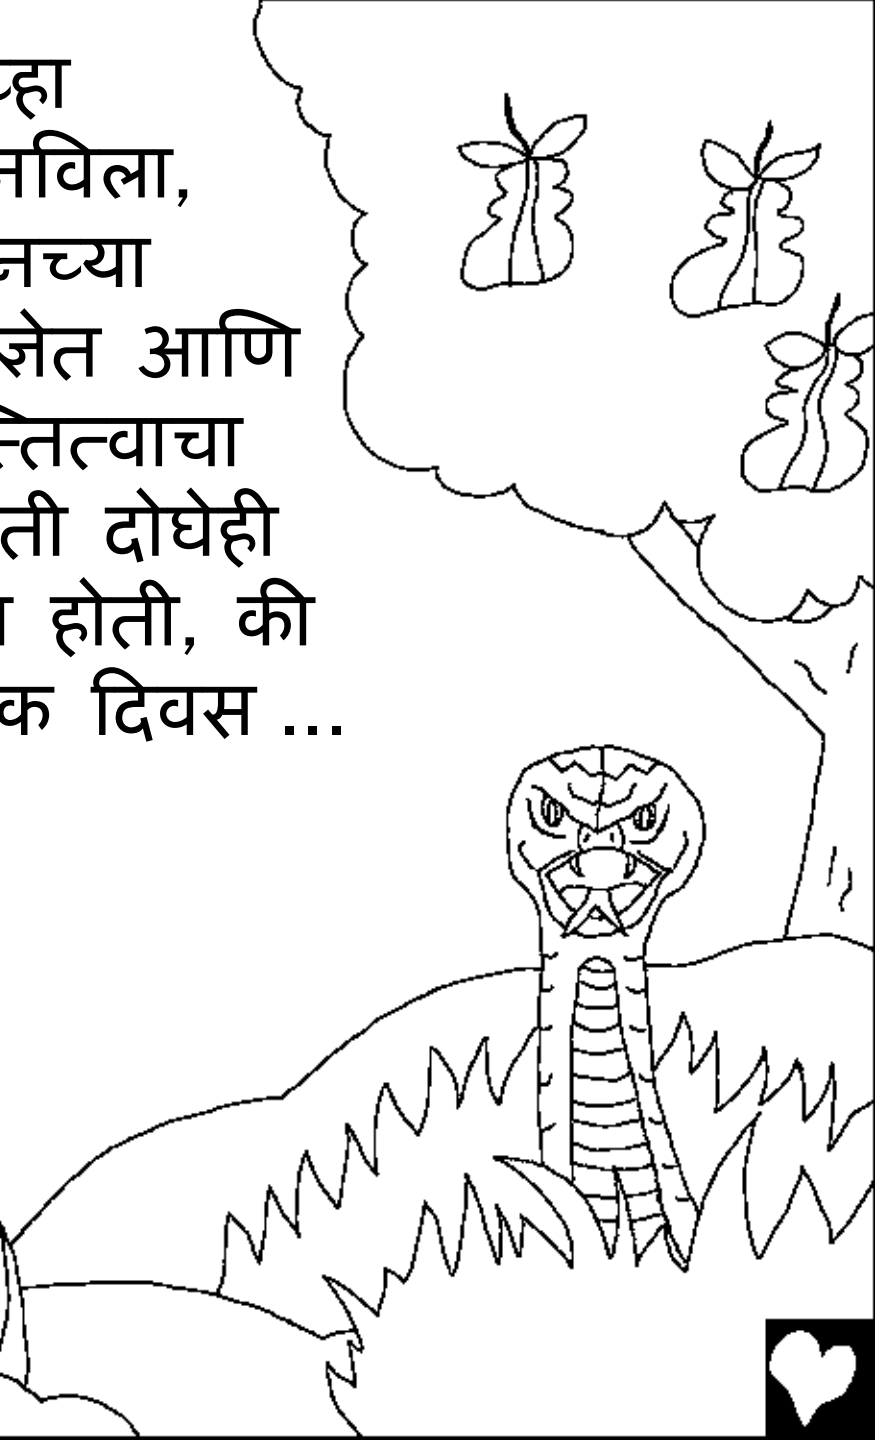 व्हा
नविला,
नच्या
ज्ञेत आणि
स्तित्वाचा
ती दोघेही
होती, की
क दिवस ...